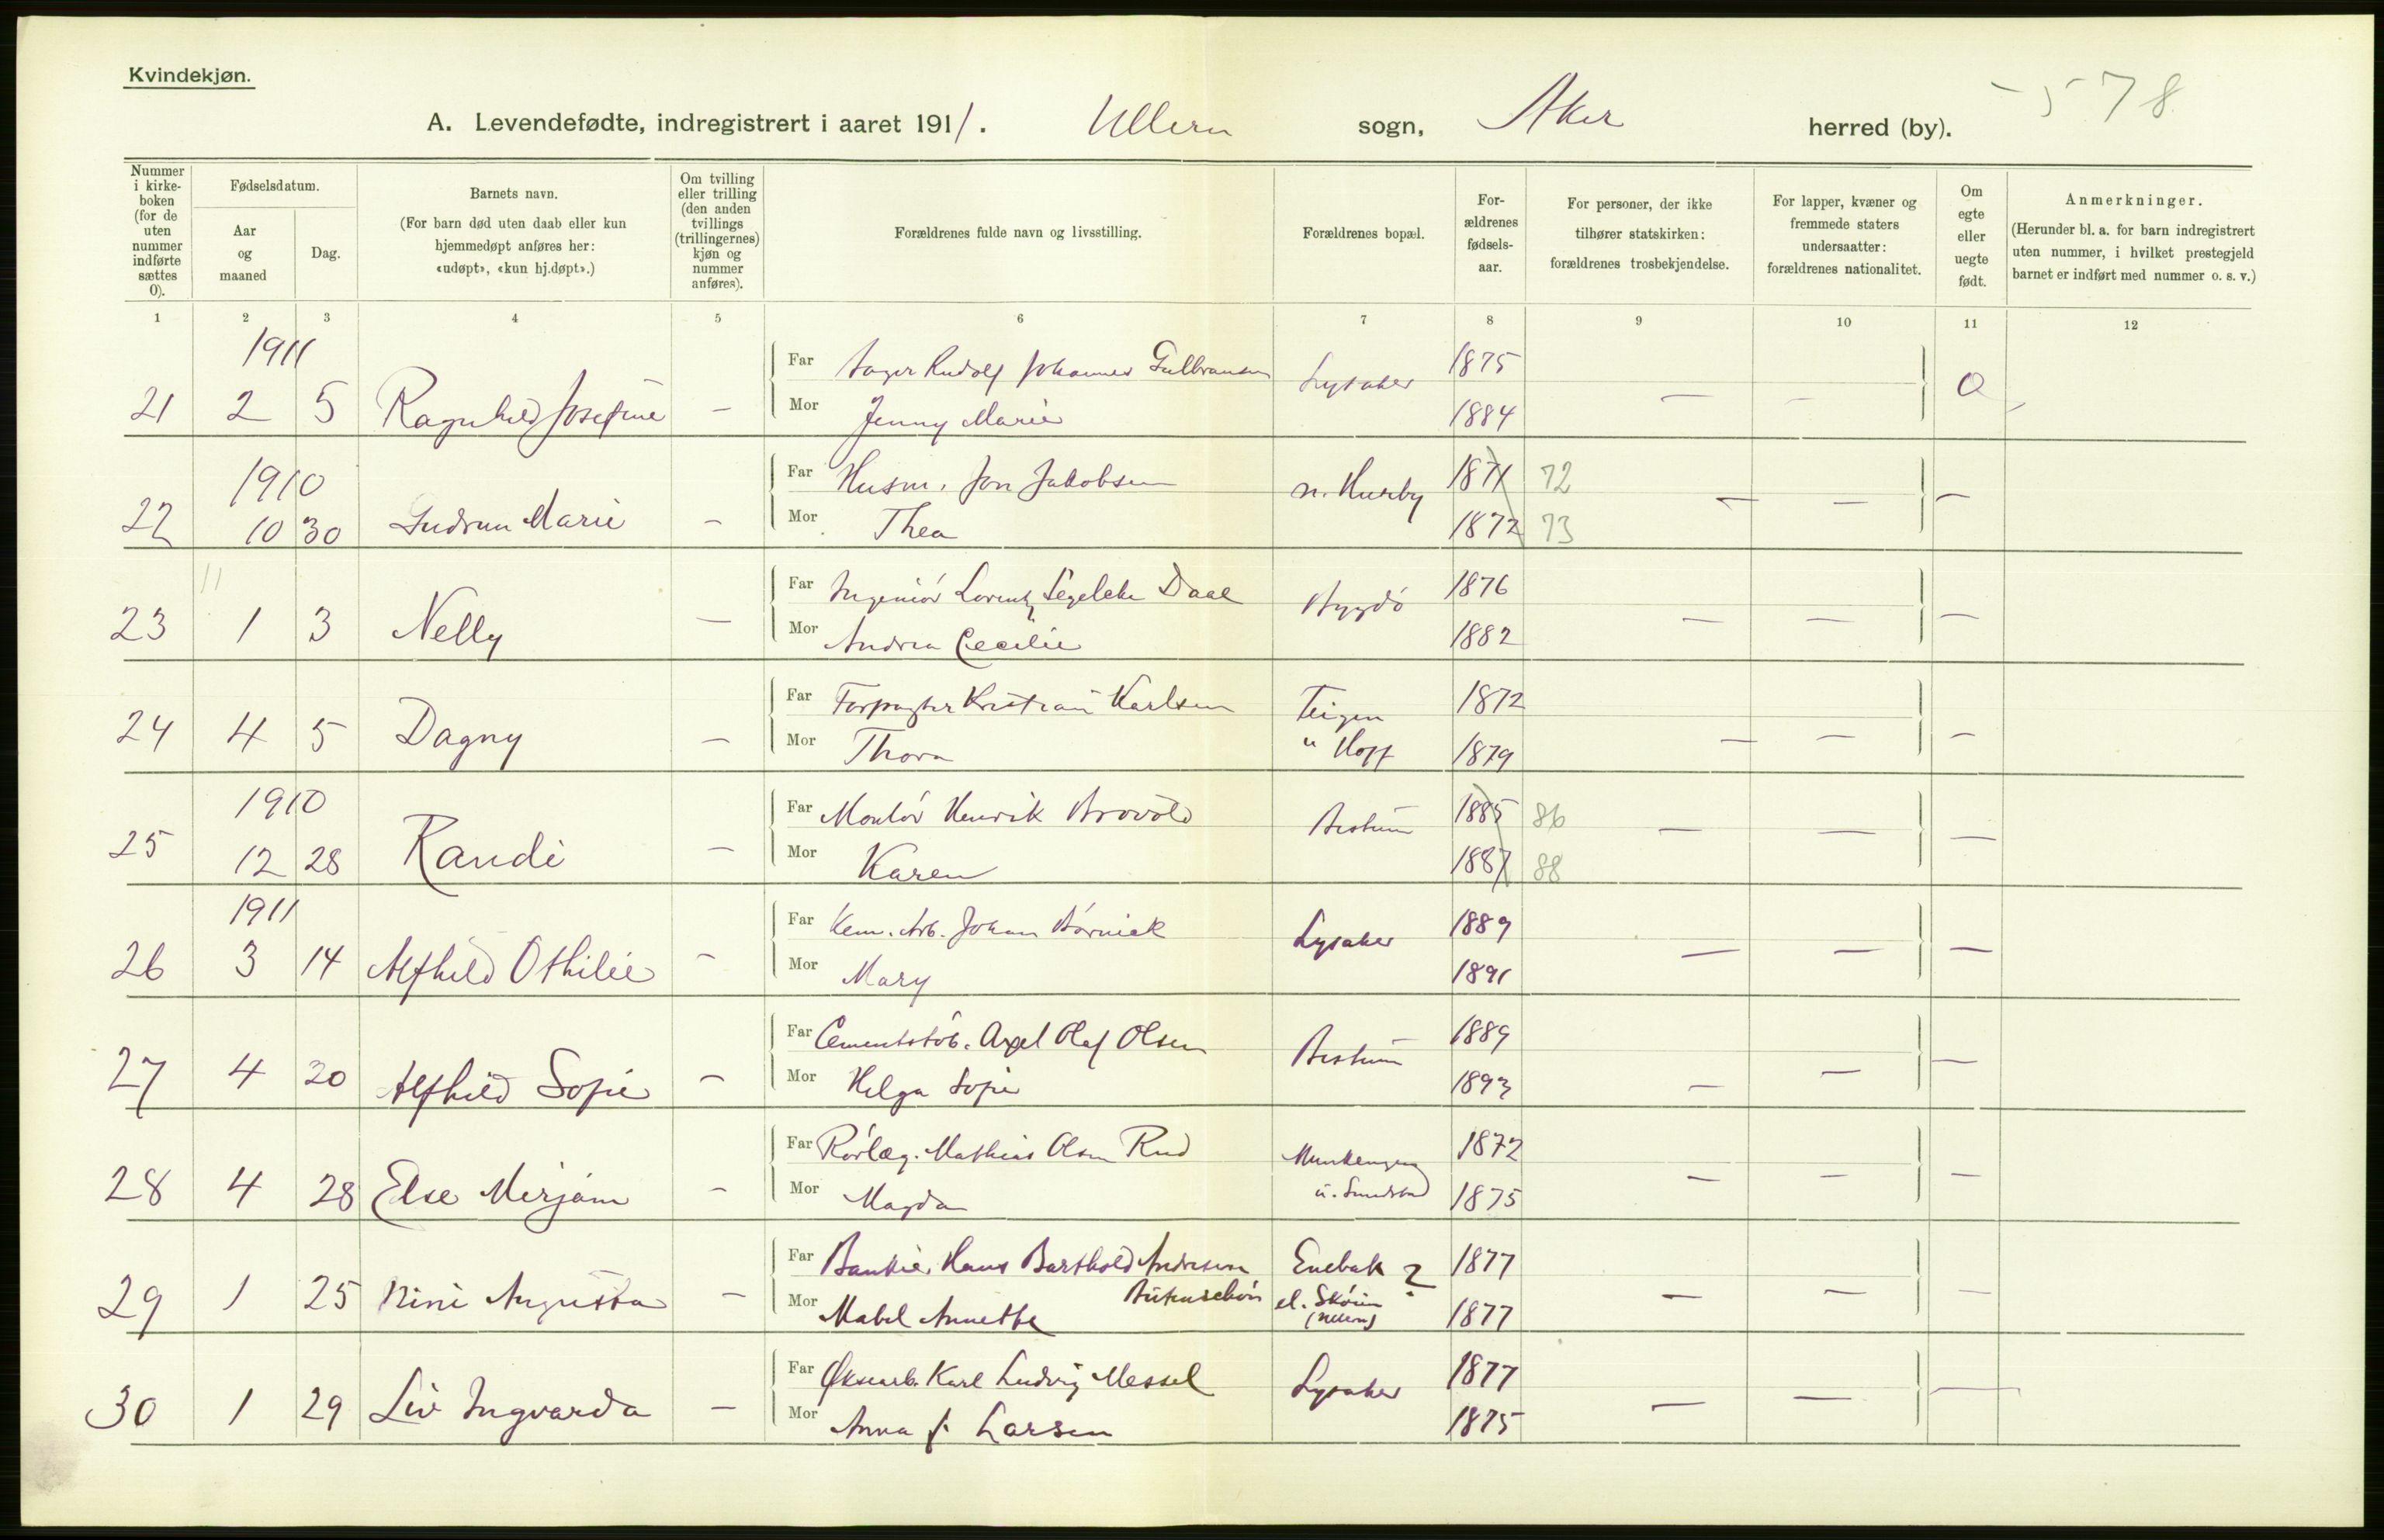 Kvindekjøn.
578
A. Levendefødte, indregistrert i aaret 1911. Ullern sogn, Aker herred (by).
Nummer i kirke-boken (for de uten nummer indførte sættes 0).
Fødselsdatum.
Aar og maaned
Dag.
Barnets navn.
(For barn død uten daab eller kun hjemmedøpt anføres her: «udøpt», «kun hj.døpt».)
Om tvilling eller trilling (den anden tvillings (trillingernes) kjøn og nummer anføres).
Forældrenes fulde navn og livsstilling.
Forældrenes bopæl.
For-ældrenes fødsels-aar.
For personer, der ikke tilhører statskirken: forældrenes trosbekjendelse.
For lapper, kvæner og fremmede staters undersaatter: forældrenes nationalitet.
Om egte eller uegte født.
Anmerkninger.
(Herunder bl. a. for barn indregistrert uten nummer, i hvilket prestegjeld barnet er indført med nummer o. s. v.)
1 2 3 4 5 6 7 8 9 10 11 12
1911
Far Rudolf Johannes Gulbransen Lysaker 1875
21 2 5 Ragnhild Josefine –
Mor Jenny Marie 1884
1910
Far Husm. Jon Jakobsen n. Huseby 1871 72
22 10 30 Gudrun Marie –
Mor Thea 1872 73
11
Far Ingeniör Lorentz Segelcke Daae Bygdö 1876
23 1 3 Nelly –
Mor Andrea Cecilie 1882
Far Forpagter Kristian Karlsen Teigen 1872
24 4 5 Dagny –
Mor Thora u Hoff 1879
1910
Far Montör Henrik Brovold Bestum 1885 86
25 12 28 Randi –
Mor Karen 1887 88
1911
Far Kem. Arb. Johan Börnick Lysaker 1889
26 3 14 Alfhild Othilie –
Mor Mary 1891
Far Cementstöb. Axel Olaf Olsen Bestum 1889
27 4 20 Alfhild Sofie –
Mor Helga Sofie 1893
Far Rörlæg. Mathias Olsen Rud Munkengen 1872
28 4 28 Else Mirjam –
Mor Magda u. 1875
Far Bankier Hans Barthold Andresen Enebak ? 1877
Butenschön
29 1 25 Nini Augusta –
Mor Mabel Annette el. Sköien (Ullern) 1877
Far Øksearb. Karl Ludvig Messel Lysaker 1877
30 1 29 Liv Ingvarda –
Mor Anna f. Larsen 1875